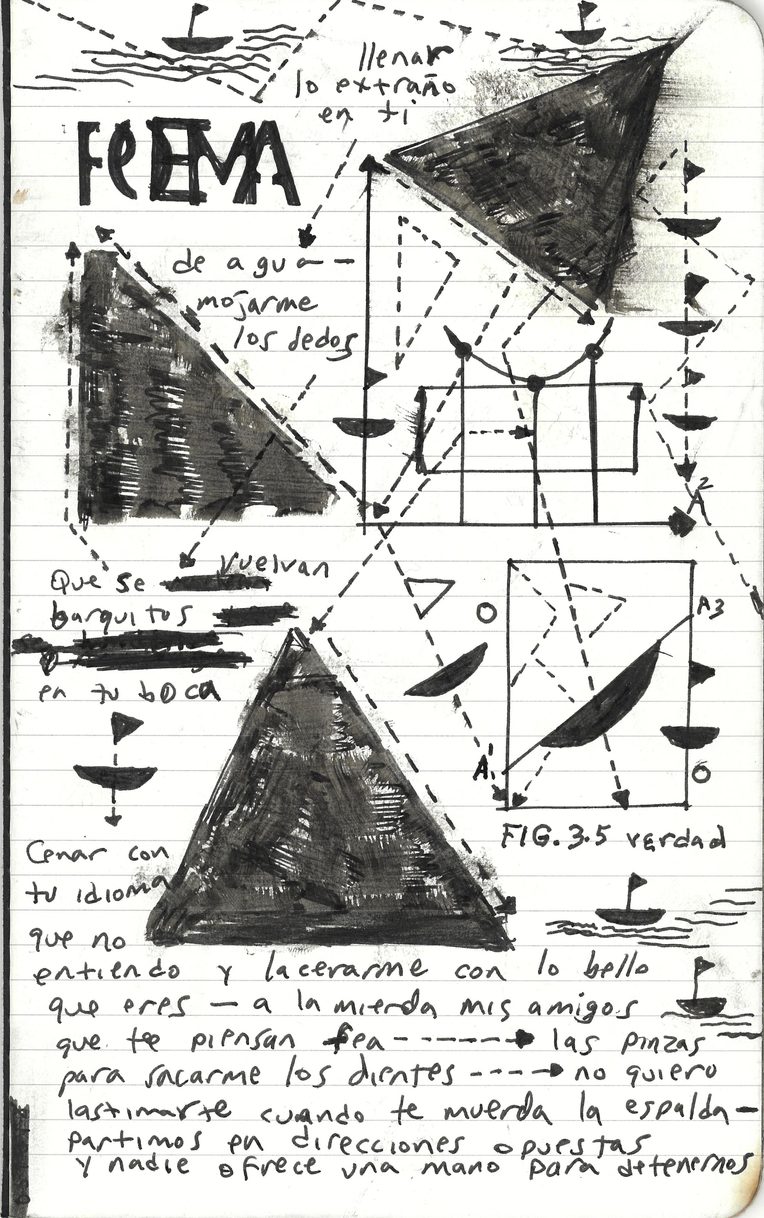 llenar
lo extraño
en ti
POEMA
de agua —
mojarme
los dedos
Que se vuelvan
barquitos
en tu boca
A2
A3
A'
FIG. 3.5 verdad
Cenar con
tu idioma
que no
entiendo y lacerarme con lo bello
que eres — a la mierda mis amigos
que te piensan fea -------> las pinzas
para sacarme los dientes ----> no quiero
lastimarte cuando te muerda la espalda —
partimos en direcciones opuestas
y nadie ofrece una mano para detenernos